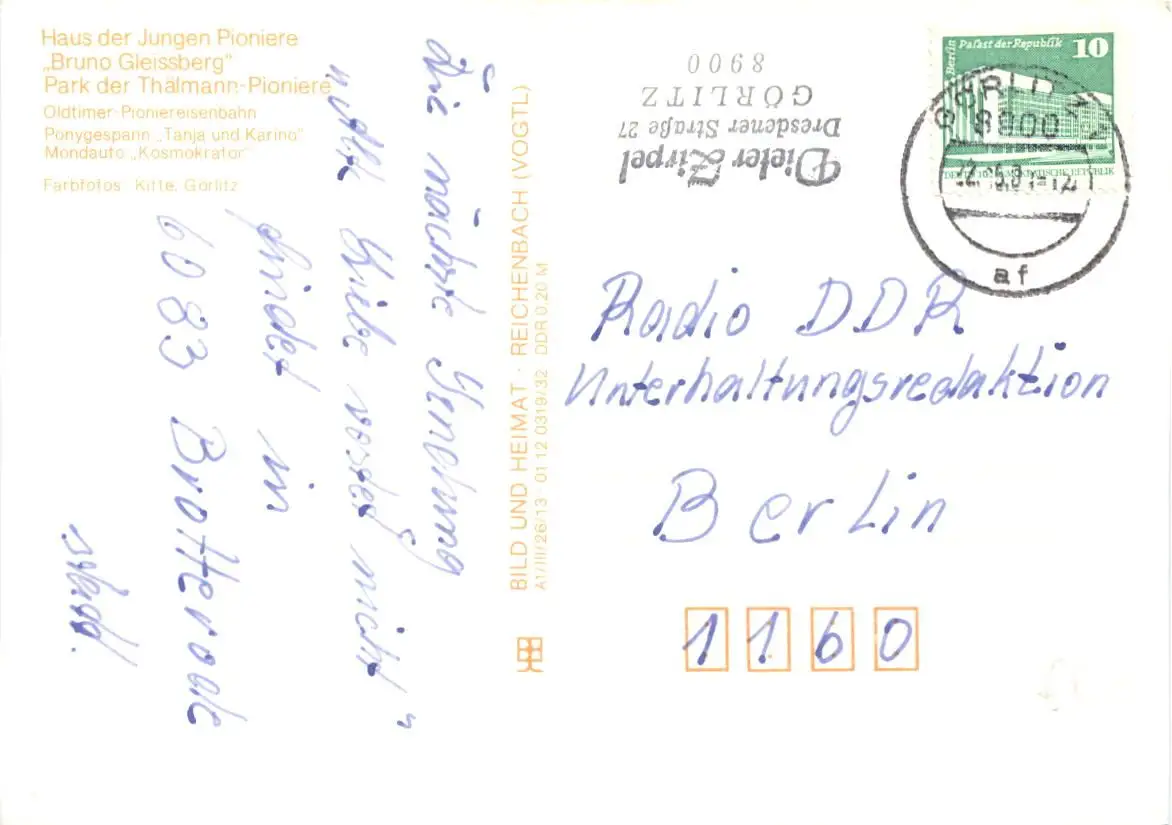 Haus der Jungen Pioniere
„Bruno Gleissberg"
Park der Thälmann-Pioniere
Oldtimer-Pioniereisenbahn
Ponygespann „Tanja und Karino"
Mondauto „Kosmokrator"
Farbfotos: Kitte, Görlitz
Die nächste Sendung
"Alte Liebe rostet nicht"
findet in
6083 Brotterode
statt.
BILD UND HEIMAT · REICHENBACH (VOGTL)
A1/III/26/13 · 01 12 0319/32 DDR 0,20 M
Dieter Zirpel
Dresdener Straße 27
GÖRLITZ
8900
Berlin
Palast der Republik
10
DEUTSCHE DEMOKRATISCHE REPUBLIK
GÖRLITZ
8900
af
Radio DDR
Unterhaltungsredaktion
Berlin
1160